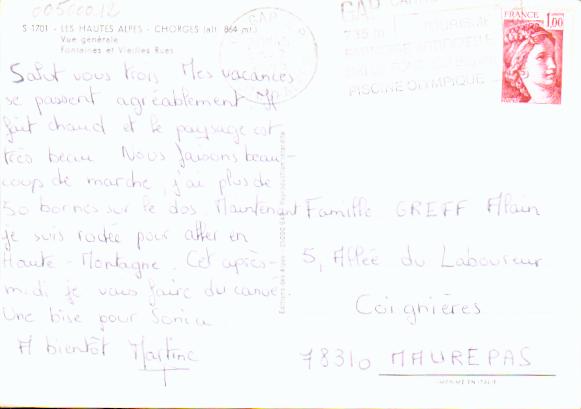 005000.12
S 1701 - LES HAUTES ALPES - CHORGES (alt. 864 m)
Vue générale
Fontaines et Vieilles Rues
GAP
GAP
PISCINE OLYMPIQUE
FRANCE
1,00
Salut vous trois Mes vacances
se passent agréablement Il
fait chaud et le paysage est
très beau Nous faisons beau-
coup de marche, j'ai plus de
50 bornes sur le dos Maintenant
je suis rodée pour aller en
Haute-Montagne. Cet après-
midi je vais faire du canoé
Une bise pour Sonia
A bientôt Martine
Famille GREFF Alain
5, Allée du Laboureur
Coignières
78310 MAUREPAS
IMPRIMÉ EN ITALIE